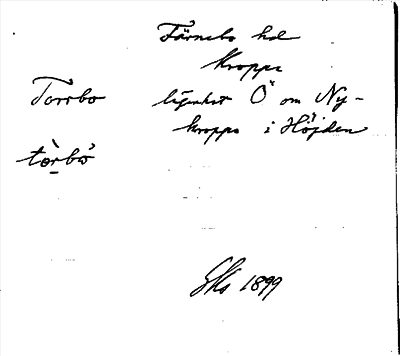 Färnebo hd
Kroppa
Torrbo lägenhet Ö om Ny-
kroppa i Höjden
tòrbo
GKs 1899